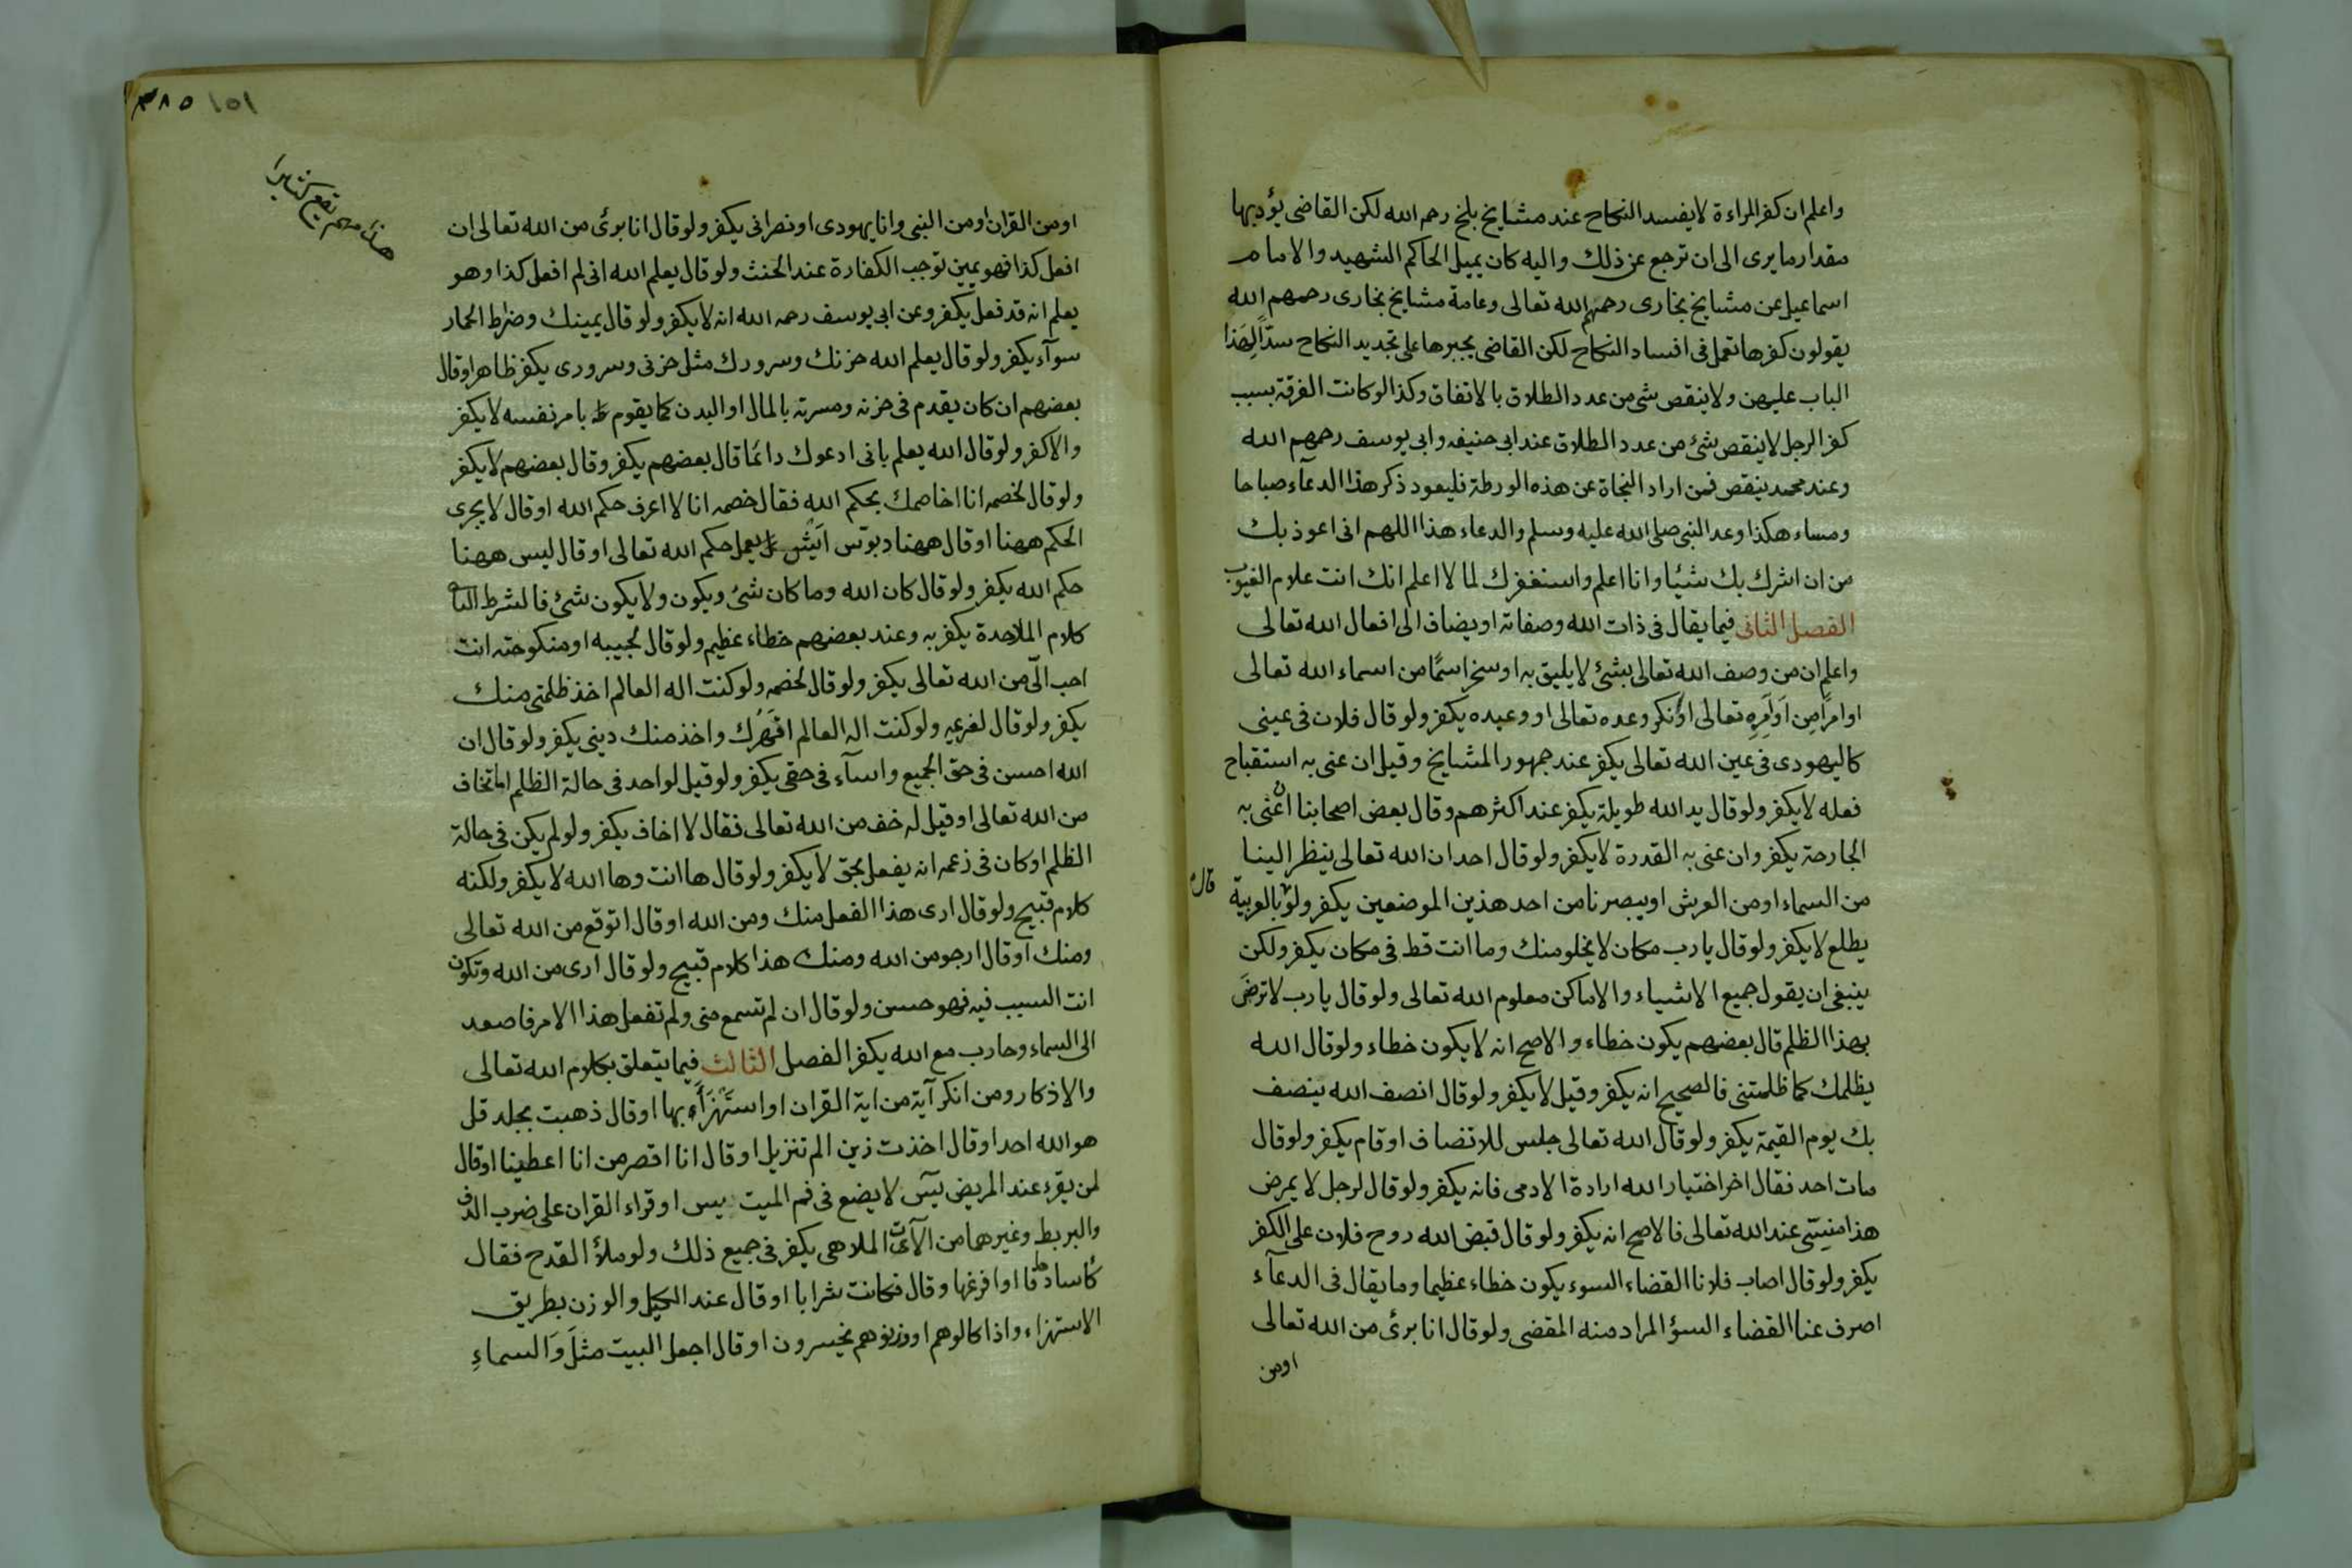 واعلم ان كفر المراءة لا يفسد النكاح عند مشايخ بلخ رحم الله لكن القاضى يؤدبها
مقدار ما يرى الى ان ترجع عن ذلك واليه كان يميل الحاكم الشهيد والامام
اسماعيل عن مشايخ بخارى رحمهم الله تعالى وعامة مشايخ بخارى رحمهم الله
يقولون كفرها تعمل فى افساد النكاح لكن القاضى يجبرها على تجديد النكاح سدّاً لهذا
الباب عليهن ولا ينقص شى من عدد الطلاق بالاتفاق وكذا لو كانت الفرقة بسبب
كفر الرجل لا ينقص شئ من عدد الطلاق عند ابى حنيفه وابى يوسف رحمهم الله
وعند محمد ينقص فمن اراد النجاة عن هذه الورطة فليعود ذكر هذا الدعآء صباحا
ومساء هكذا وعد النبى صلى الله عليه وسلم والدعاء هذا اللهم انى اعوذ بك
من ان اشرك بك شئيا وانا اعلم واستغفرك لما لا اعلم انك انت علام الغيوب
الفصل الثانى فيما يقال فى ذات الله وصفاته او يضاف الى افعال الله تعالى
واعلم ان من وصف الله تعالى بشئ لا يليق به او سخر اسمًا من اسماء الله تعالى
او امرًا مِن اَوَامِرِهِ تعالى او نكر وعده تعالى او وعيده يكفر ولو قال فلان فى عينى
كاليهودى فى عين الله تعالى يكفر عند جمهور المشايخ وقيل ان عنى به استقباح
فعله لا يكفر ولو قال يد الله طويلة يكفر عند اكثرهم وقال بعض اصحابنا ان عنى به
الجارحة يكفر وان عنى به القدرة لا يكفر ولو قال احد ان الله تعالى ينظر الينا
من السماء او من العرش او يبصرنا من احد هذين الموضعين يكفر ولو بالعربية
قال
يطلع لا يكفر ولو قال يا رب مكان لا يخلو منك وما انت قط فى مكان يكفر ولكن
ينبغى ان يقول جميع الاشياء والاماكن معلوم الله تعالى ولو قال يا رب لا ترضَى
بهذا الظلم قال بعضهم يكون خطاء والاصح انه لا يكون خطاء ولو قال الله
يظلمك كما ظلمتنى فالصحيح انه يكفر وقيل لا يكفر ولو قال انصف الله ينصف
بك يوم القيمة يكفر ولو قال الله تعالى جلس للانصاف او قام يكفر ولو قال
مات احد فقال اخر اختيار الله ارادة الادمى فانه يكفر ولو قال لرجل لا يمرض
هذا منسىّ عند الله تعالى فالاصح انه يكفر ولو قال قبض الله روح فلان على الكفر
يكفر ولو قال اصاب فلانا القضاء السوء يكون خطاء عظيما وما يقال فى الدعآء
اصرف عنا القضاء السؤ المراد منه المقضى ولو قال انا برئ من الله تعالى
اومن
٣٨٥ ١٥١
هذا مهم يقع كثيرا
او من القران او من النبى وانا يهودى او نصرانى يكفر ولو قال انا برئ من الله تعالى ان
افعل كذا فهو يمين توجب الكفارة عند الحنث ولو قال يعلم الله انى لم افعل كذا وهو
يعلم انه قد فعل يكفر وعن ابى يوسف رحمه الله انه لا يكفر ولو قال يمينك وضراط الحمار
سوآء يكفر ولو قال يعلم الله حزنك وسرورك مثل حزنى وسرورى يكفر ظاهرا وقال
بعضهم ان كان يقدم فى حزنه ومسرته بالمال او البدن كما يقوم بامر نفسه لا يكفر
والا كفر ولو قال الله يعلم بانى ادعوك دائما قال بعضهم يكفر وقال بعضهم لا يكفر
ولو قال لخصمه انا اخاصمك بحكم الله فقال خصمه انا لا اعرف حكم الله او قال لا يجرى
الحكم ههنا او قال ههنا دبوتس اَيْش يعمل حكم الله تعالى او قال ليس ههنا
حكم الله يكفر ولو قال كان الله وما كان شئ ويكون ولا يكون شئ فالشرط
كلام الملاحدة يكفر به وعند بعضهم خطاء عظيم ولو قال لحبيبه او منكوحته انت
احب الىّ من الله تعالى يكفر ولو قال لخصمه ولو كنت اله العالم اخذ ظلمتى منك
يكفر ولو قال لغريمه ولو كنت اله العالم اقهرك واخذ منك دينى يكفر ولو قال ان
الله احسن فى حق الجميع واسآء فى حقى يكفر ولو قيل لواحد فى حالة الظلم اما تخاف
من الله تعالى او قيل له خف من الله تعالى فقال لا اخاف يكفر ولو لم يكن فى حالة
الظلم او كان فى زعمه انه يفعل بحق لا يكفر ولو قال ها انت وها الله لا يكفر ولكنه
كلام قبيح ولو قال ارى هذا الفعل منك ومن الله او قال اتوقع من الله تعالى
ومنك او قال ارجو من الله ومنك هذا كلام قبيح ولو قال ارى من الله وتكون
انت السبب فيه فهو حسن ولو قال ان لم تسمع منى ولم تفعل هذا الامر فاصعد
الى السماء وحارب مع الله يكفر الفصل الثالث فيما يتعلق بكلام الله تعالى
والاذكار ومن انكر آية من اية القران او استَهْزَأَ بها او قال ذهبت بجلد قل
هو الله احد او قال اخذت زين الم تنزيل او قال انا اقصر من انا اعطينا او قال
لمن يقرء عند المريض يٓسٓ لا يضع فى فم الميت يس او قراء القران على ضرب الدف
والبربط وغيرهما من الآت الملاهى يكفر فى جميع ذلك ولو ملأ القدح فقال
كأسا دهاقا او افرغها وقال فكانت شرابا او قال عند الكيل والوزن بطريق
الاستهزاء واذا كالوهم او وزنوهم يخسرون او قال اجعل البيت مثلَ وَالسماءِ